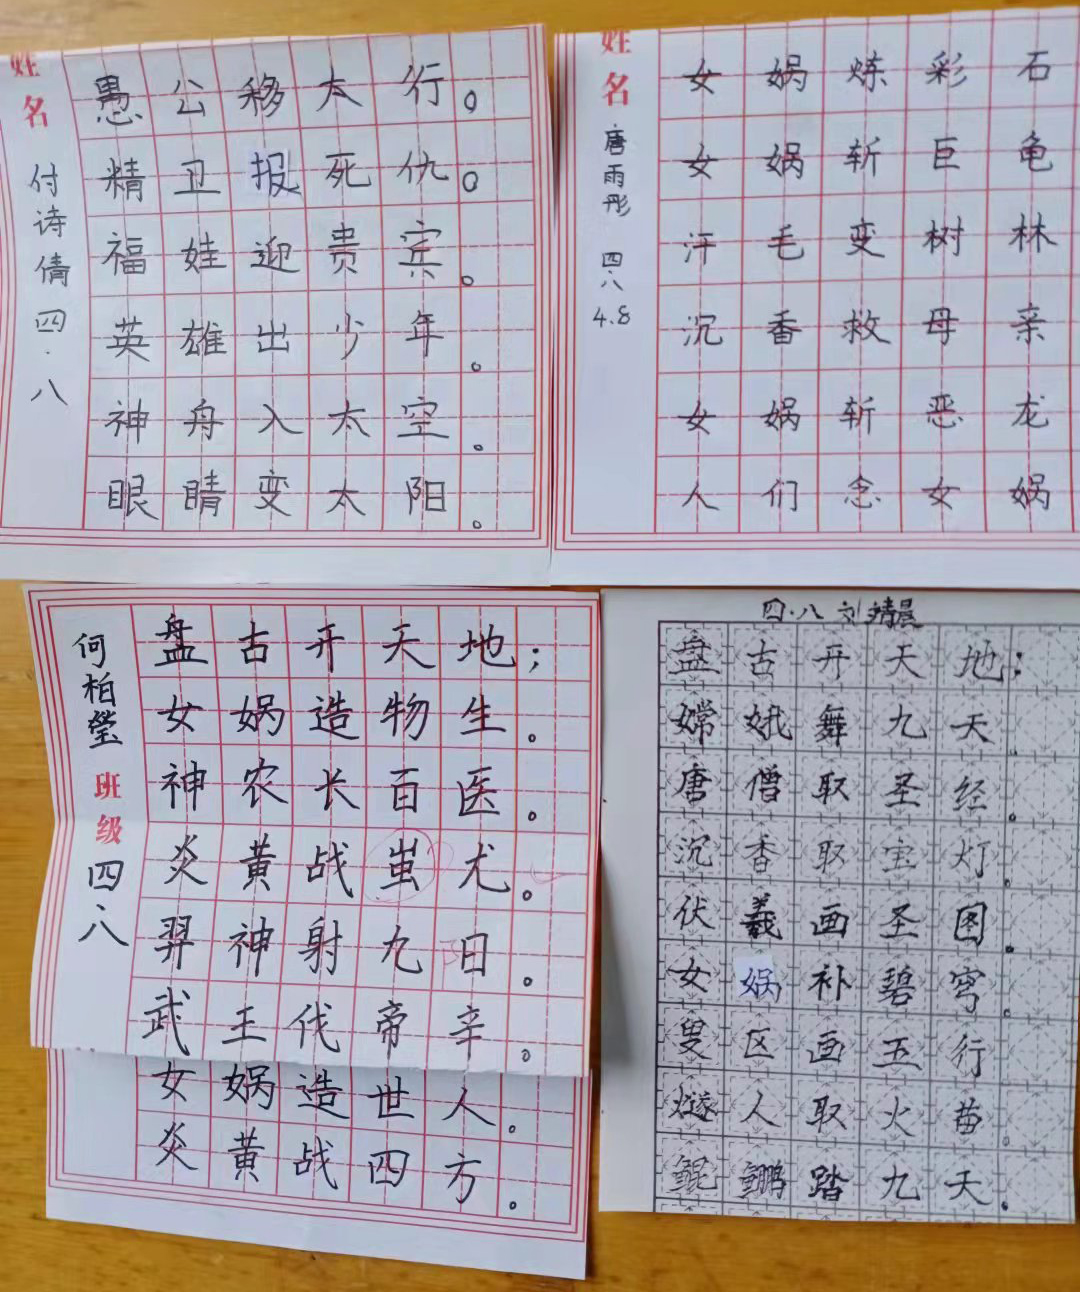 姓名 付诗倩 四·八
愚公移太行。
精卫报死仇。
福娃迎贵宾。
英雄出少年。
神舟入太空。
眼睛变太阳。
姓名 唐雨彤 四八 4.8
女娲炼彩石
女娲斩巨龟
汗毛变树林
沉香救母亲
女娲斩恶龙
人们念女娲
何柏莹 班级 四八
盘古开天地；
女娲造物生。
神农长百医。
炎黄战蚩尤。
羿神射九日。
武王伐帝辛。
女娲造世人。
炎黄战四方。
四·八 刘婧晨
盘古开天地；
嫦娥舞九天。
唐僧取圣经。
沉香取宝灯。
伏羲画圣图。
女娲补碧穹。
叟区画五行
燧人取火苗。
鲲鹏踏九天。